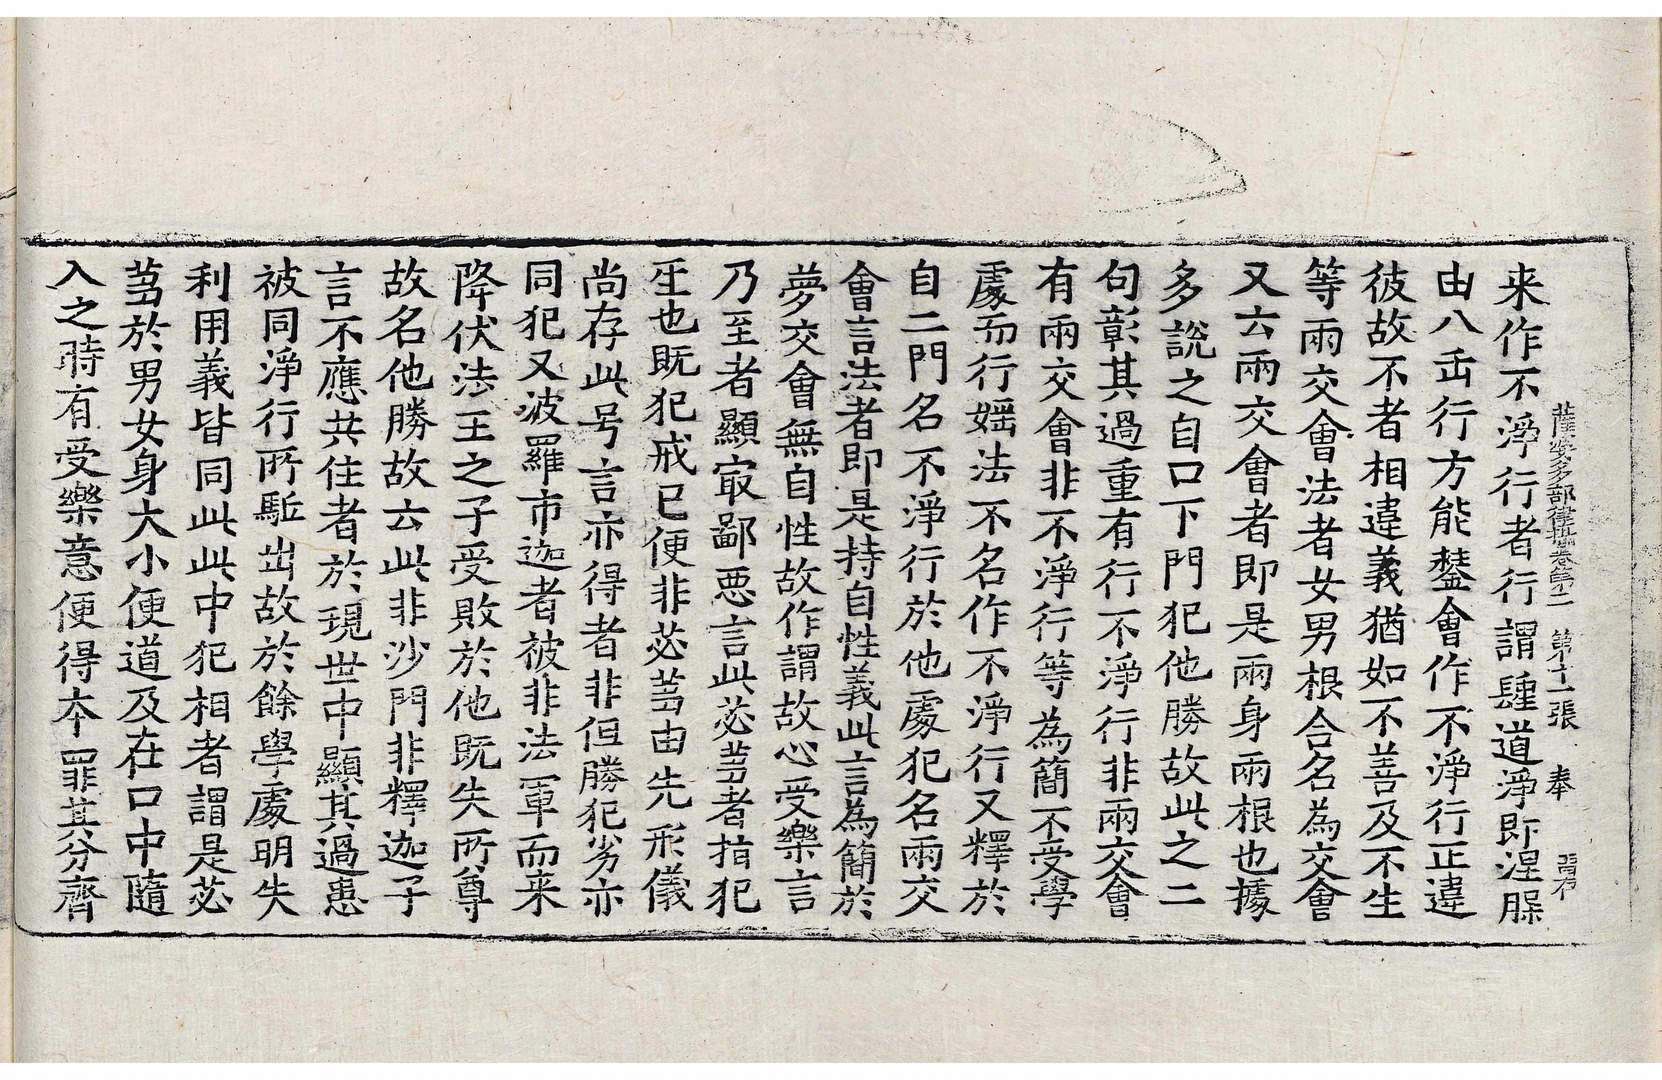 薩婆多部律攝卷第二　第十一張　奉
来作不淨行者行謂䵃道淨即涅槃
由八𠙽行方能鏨會作不淨行正違
彼故不者相違義猶如不善及不生
等兩交會法者女男根合名為交會
又云兩交會者即是兩身兩根也據
多說之自口下門犯他勝故此之二
句彰其過重有行不淨行非兩交會
有兩交會非不淨行等為簡不受學
處而行婬法不名作不淨行又釋於
自二門名不淨行於他處犯名兩交
會言法者即是持自性義此言為簡於
夢交會無自性故作謂故心受樂言
乃至者顯㝡鄙惡言此苾芻者指犯
𤯔也既犯戒已便非苾芻由先形儀
尚存此号言亦得者非但勝犯劣亦
同犯又波羅市迦者被非法軍而来
降伏法王之子受敗於他既失所尊
故名他勝故云此非沙門非釋迦子
言不應共住者於現世中顯其過患
被同淨行所駈出故於餘學處明失
利用義皆同此此中犯相者謂是苾
芻於男女身大小便道及在口中隨
入之時有受樂意便得本罪其分齊